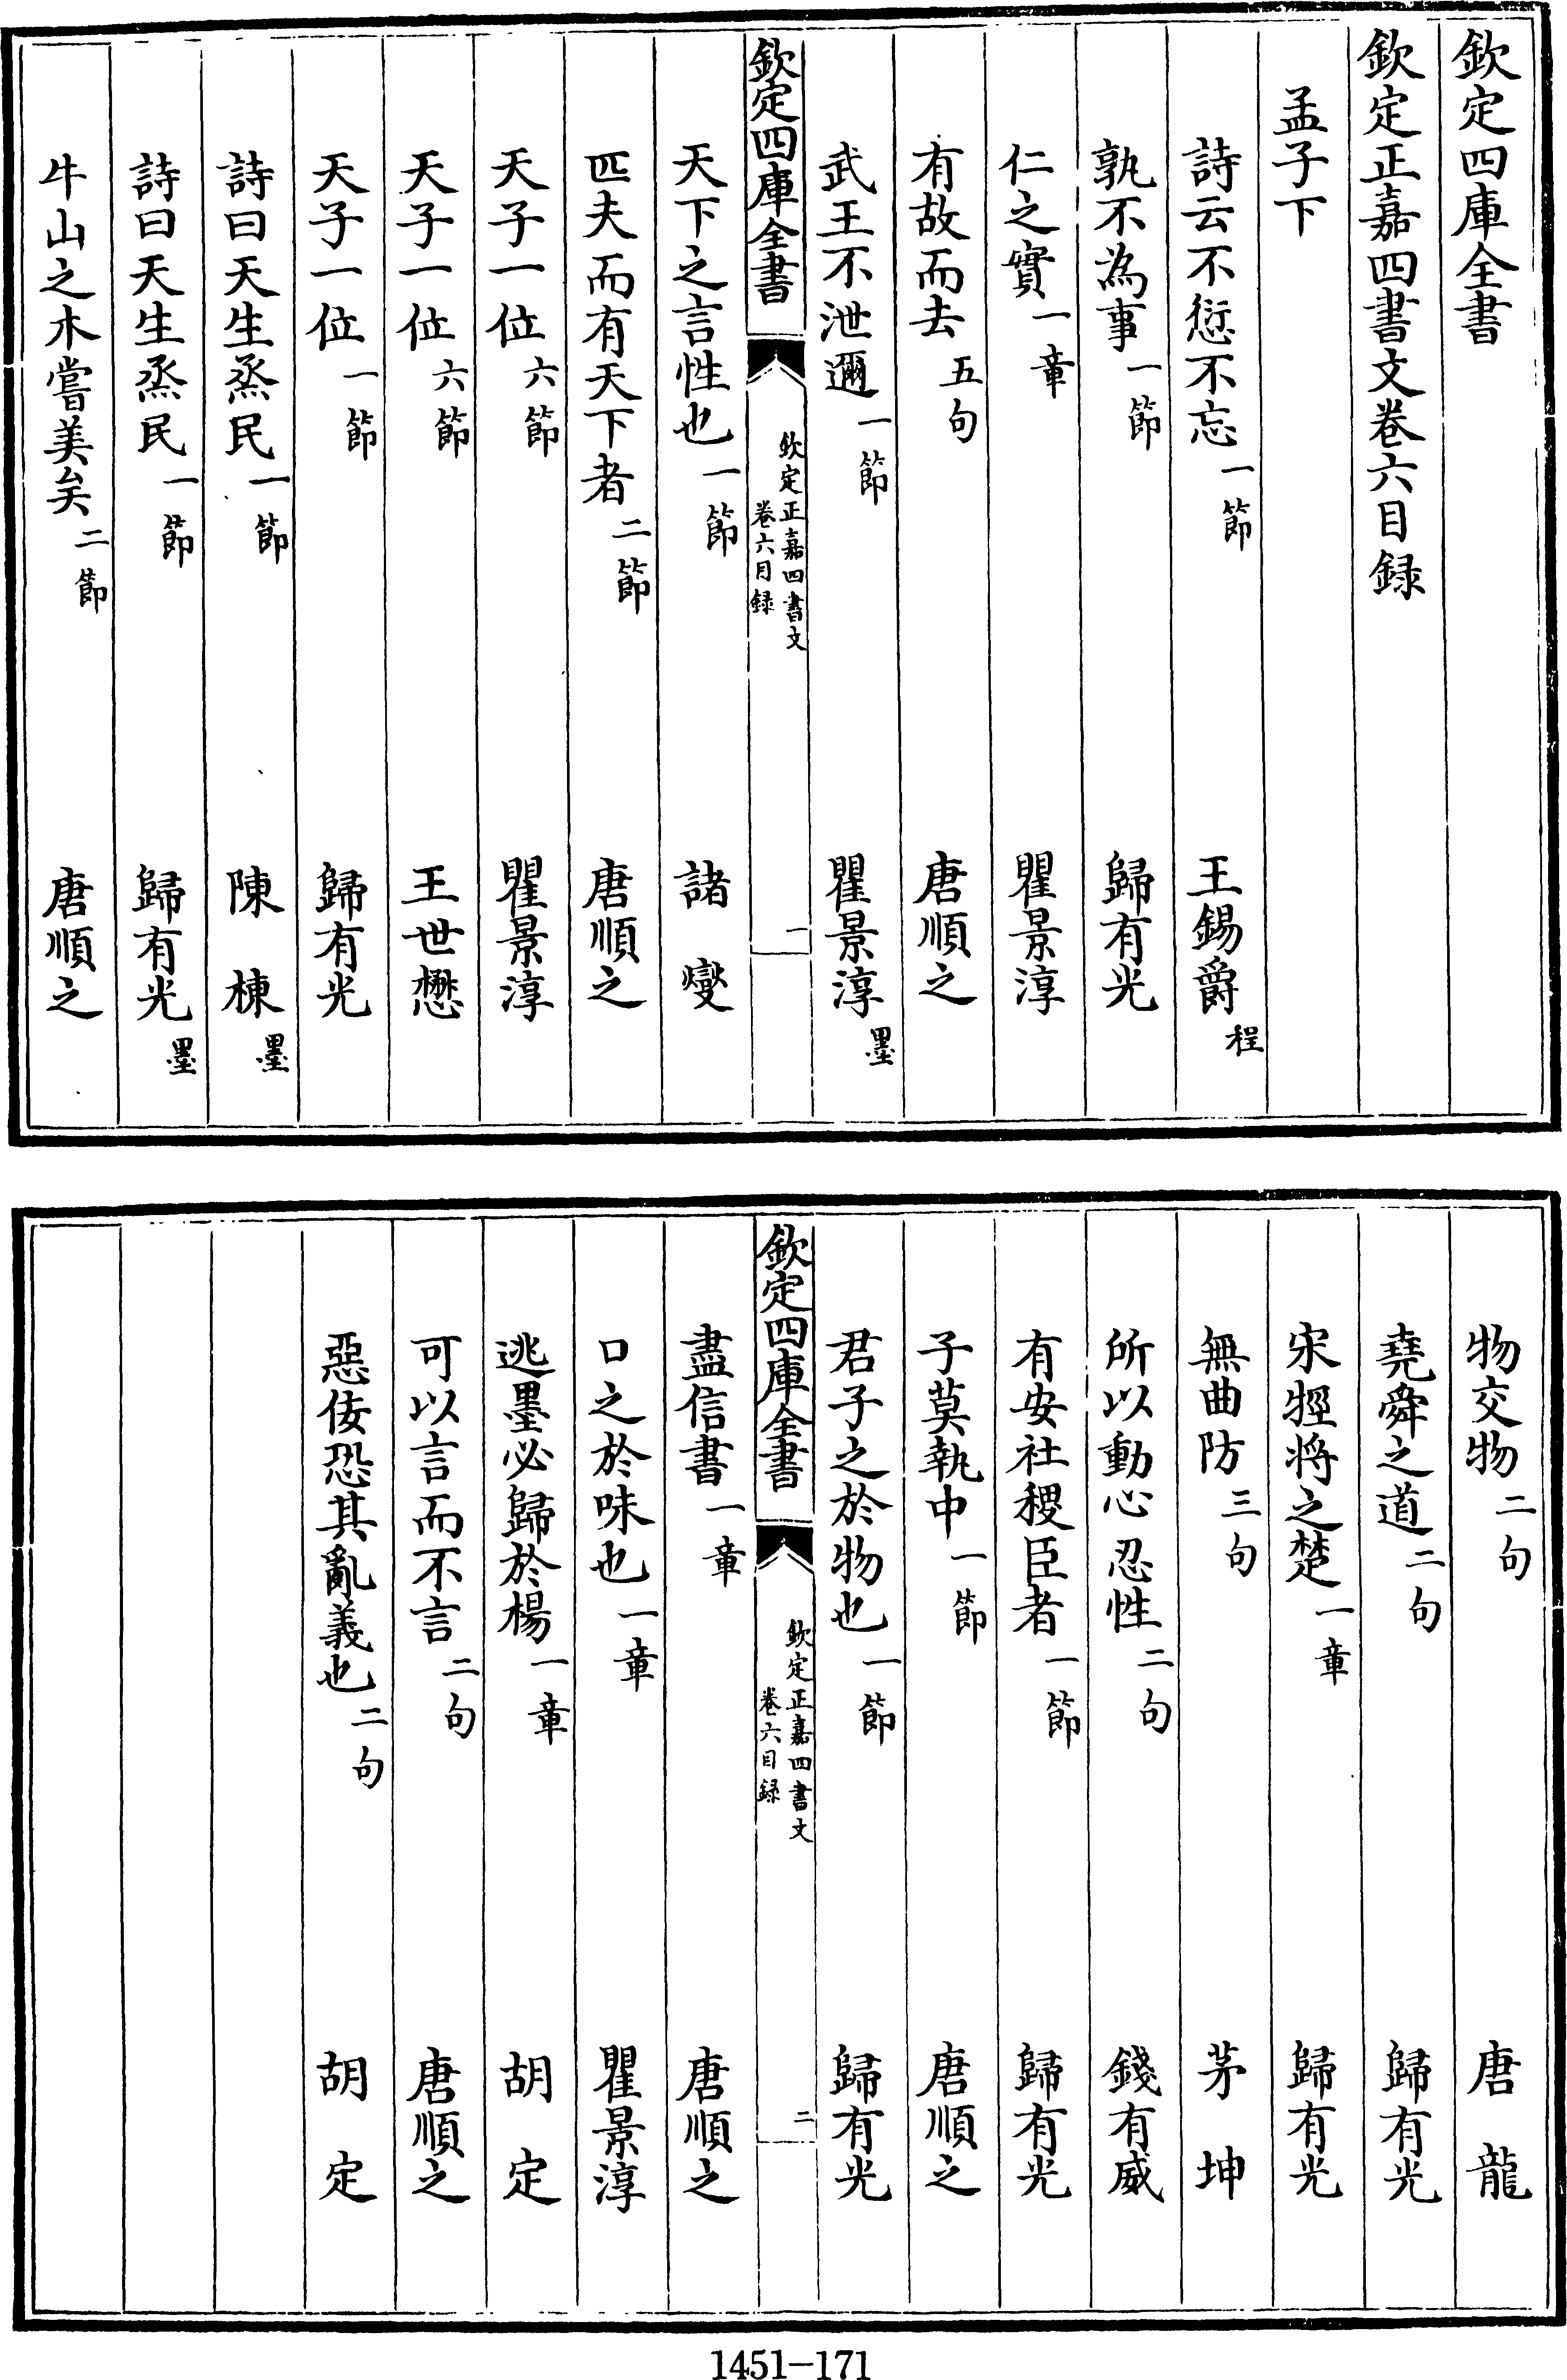 欽定四庫全書
欽定正嘉四書文卷六目録
孟子下
詩云不愆不忘一節 王錫爵程
孰不為事一節 歸有光
仁之實一章 瞿景淳
有故而去五句 唐順之
武王不泄邇一節 瞿景淳墨
欽定四庫全書 欽定正嘉四書文 卷六目録 一
天下之言性也一節 諸燮
匹夫而有天下者二節 唐順之
天子一位六節 瞿景淳
天子一位六節 王世懋
天子一位一節 歸有光
詩曰天生烝民一節 陳棟墨
詩曰天生烝民一節 歸有光墨
牛山之木嘗美矣二節 唐順之
物交物二句 唐龍
堯舜之道二句 歸有光
宋牼将之楚一章 歸有光
無曲防三句 茅坤
所以動心忍性二句 錢有威
有安社稷臣者一節 歸有光
子莫執中一節 唐順之
君子之於物也一節 歸有光
欽定四庫全書 欽定正嘉四書文 卷六目録 二
盡信書一章 唐順之
口之於味也一章 瞿景淳
逃墨必歸於楊一章 胡定
可以言而不言二句 唐順之
惡佞恐其亂義也二句 胡定
1451-171